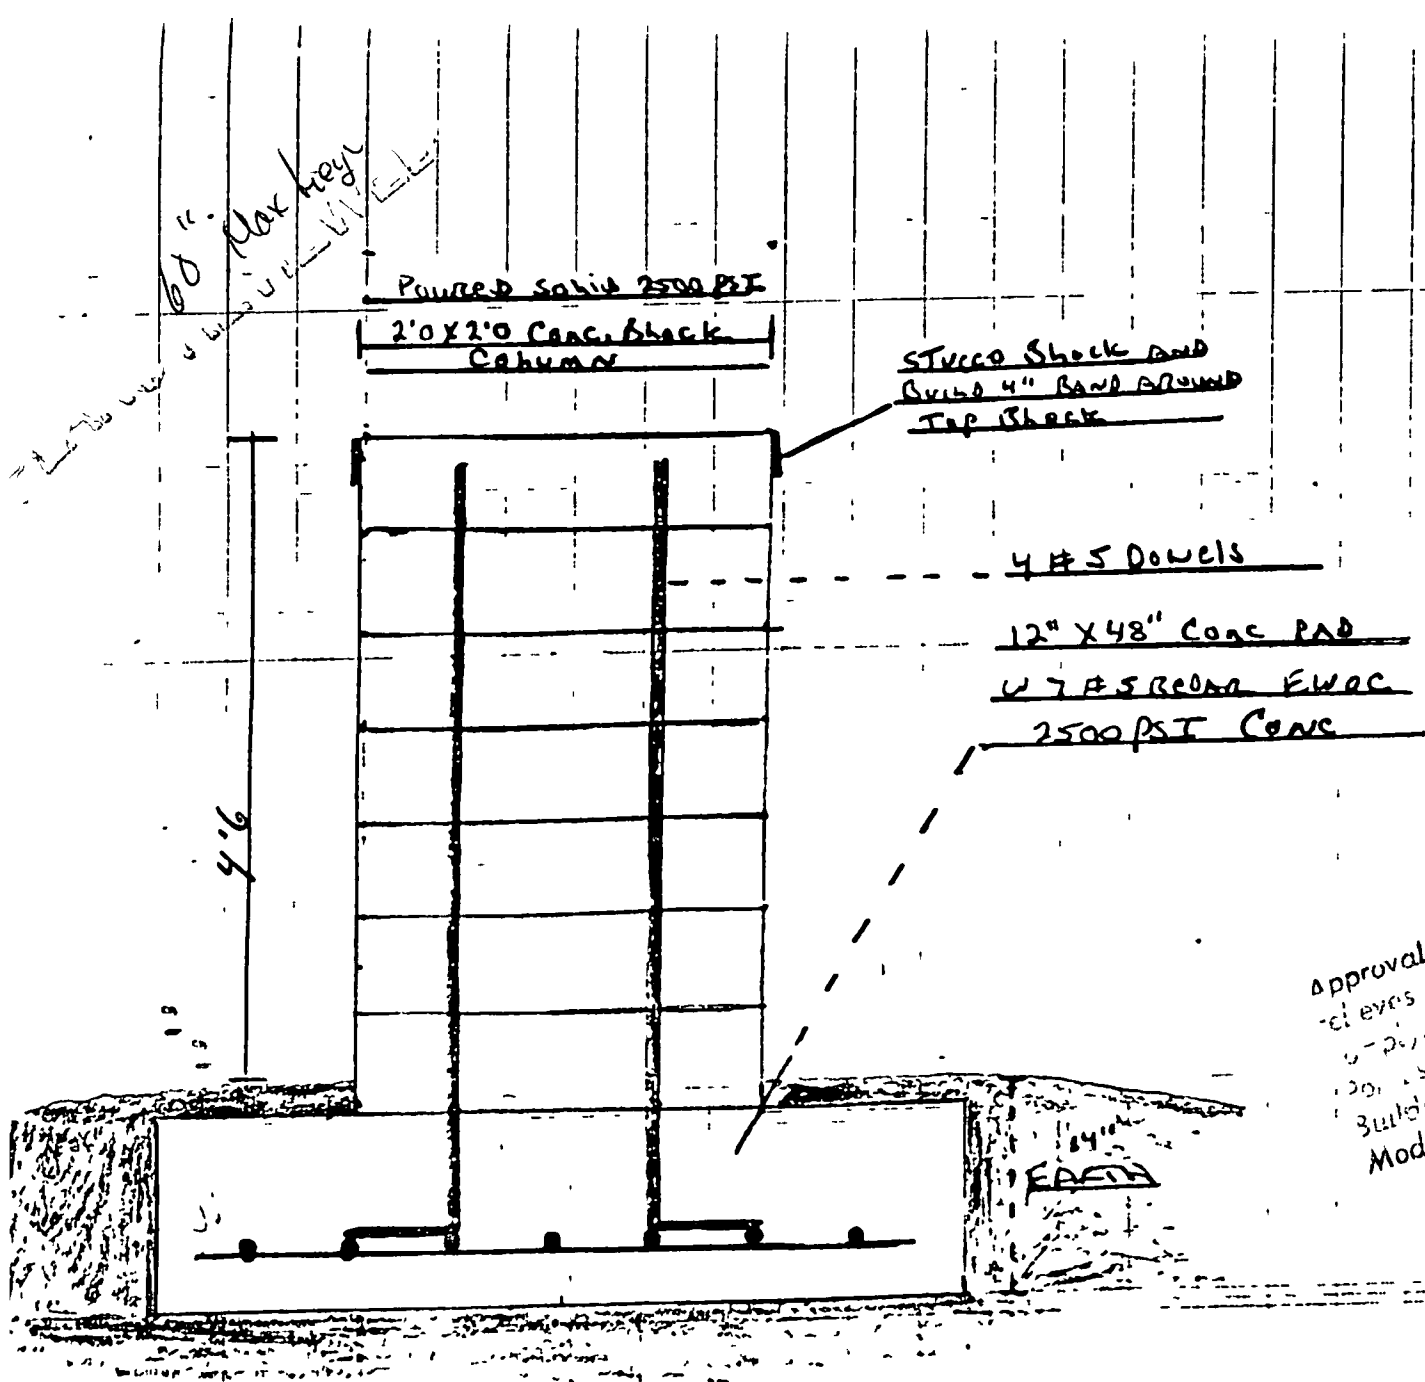 60" Max
Poured Solid 2500 PSI
2'0 X 2'0 Conc. Block
Column
STUCCO Block AND
BUILD 4" BAND AROUND
Top Block
4 # 5 Dowels
12" X 48" Conc PAD
W 7 # 5 REBAR EWOC
2500 PSI CONC
4'6
Approval
Mod
EARTH